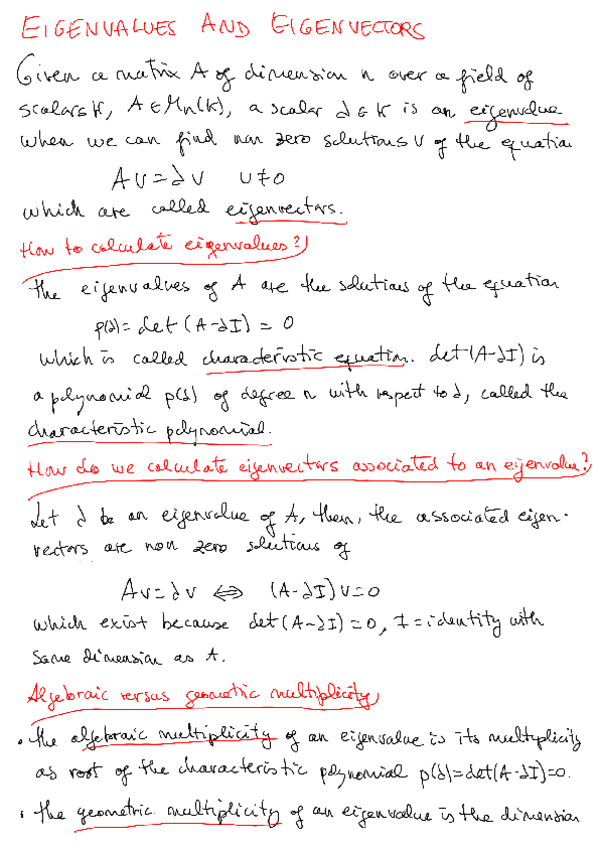 EIGENVALUES AND EIGENVECTORS
Given a matrix A of dimension n over a field of
scalars K, A ∈ Mn(K), a scalar λ ∈ K is an eigenvalue
when we can find non zero solutions v of the equation
Av = λv v ≠ 0
which are called eigenvectors.
How to calculate eigenvalues?
The eigenvalues of A are the solutions of the equation
p(λ) = det (A - λI) = 0
which is called characteristic equation. det(A-λI) is
a polynomial p(λ) of degree n with respect to λ, called the
characteristic polynomial.
How do we calculate eigenvectors associated to an eigenvalue?
Let λ be an eigenvalue of A, then, the associated eigen-
vectors are non zero solutions of
Av = λv ⟺ (A - λI)v = 0
which exist because det(A - λI) = 0, I = identity with
same dimension as A.
Algebraic versus geometric multiplicity
• The algebraic multiplicity of an eigenvalue is its multiplicity
as root of the characteristic polynomial p(λ) = det(A - λI) = 0.
• The geometric multiplicity of an eigenvalue is the dimension